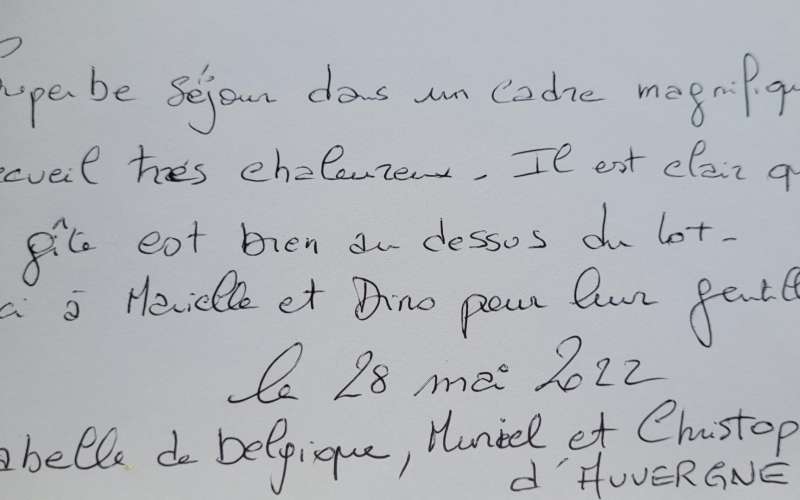 Superbe séjour dans un cadre magnifiqu
ccueil très chaleureux. Il est clair q
gîte est bien au dessus du lot.
ci à Marielle et Dino pour leur gentill
le 28 mai 2022
abelle de Belgique, Muriel et Christop
d'AUVERGNE